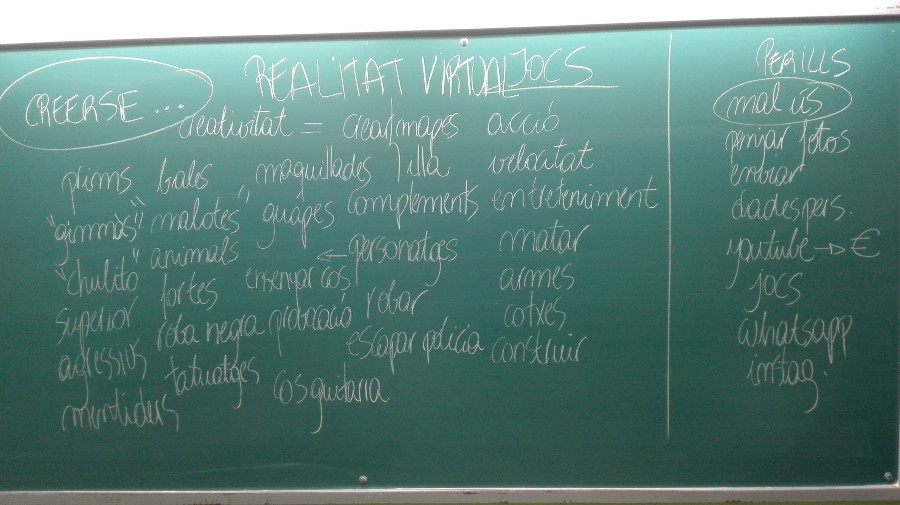 CREERSE...
REALITAT VIRTUAL JOCS
creativitat = crear mapes acció
prims bales maquillades 1 illa velocitat
"gimnàs" "malotes" guapes complements entreteniment
"chulito" animals ← personatges matar
superior fortes ensenyar cos robar armes
agressius roba negra provocació cotxes
mentiders tatuatges cos guitarra escapar policia construir
PERILLS
mal ús
penjar fotos
enviar
dades pers.
youtube → €
jocs
whatsapp
instag.